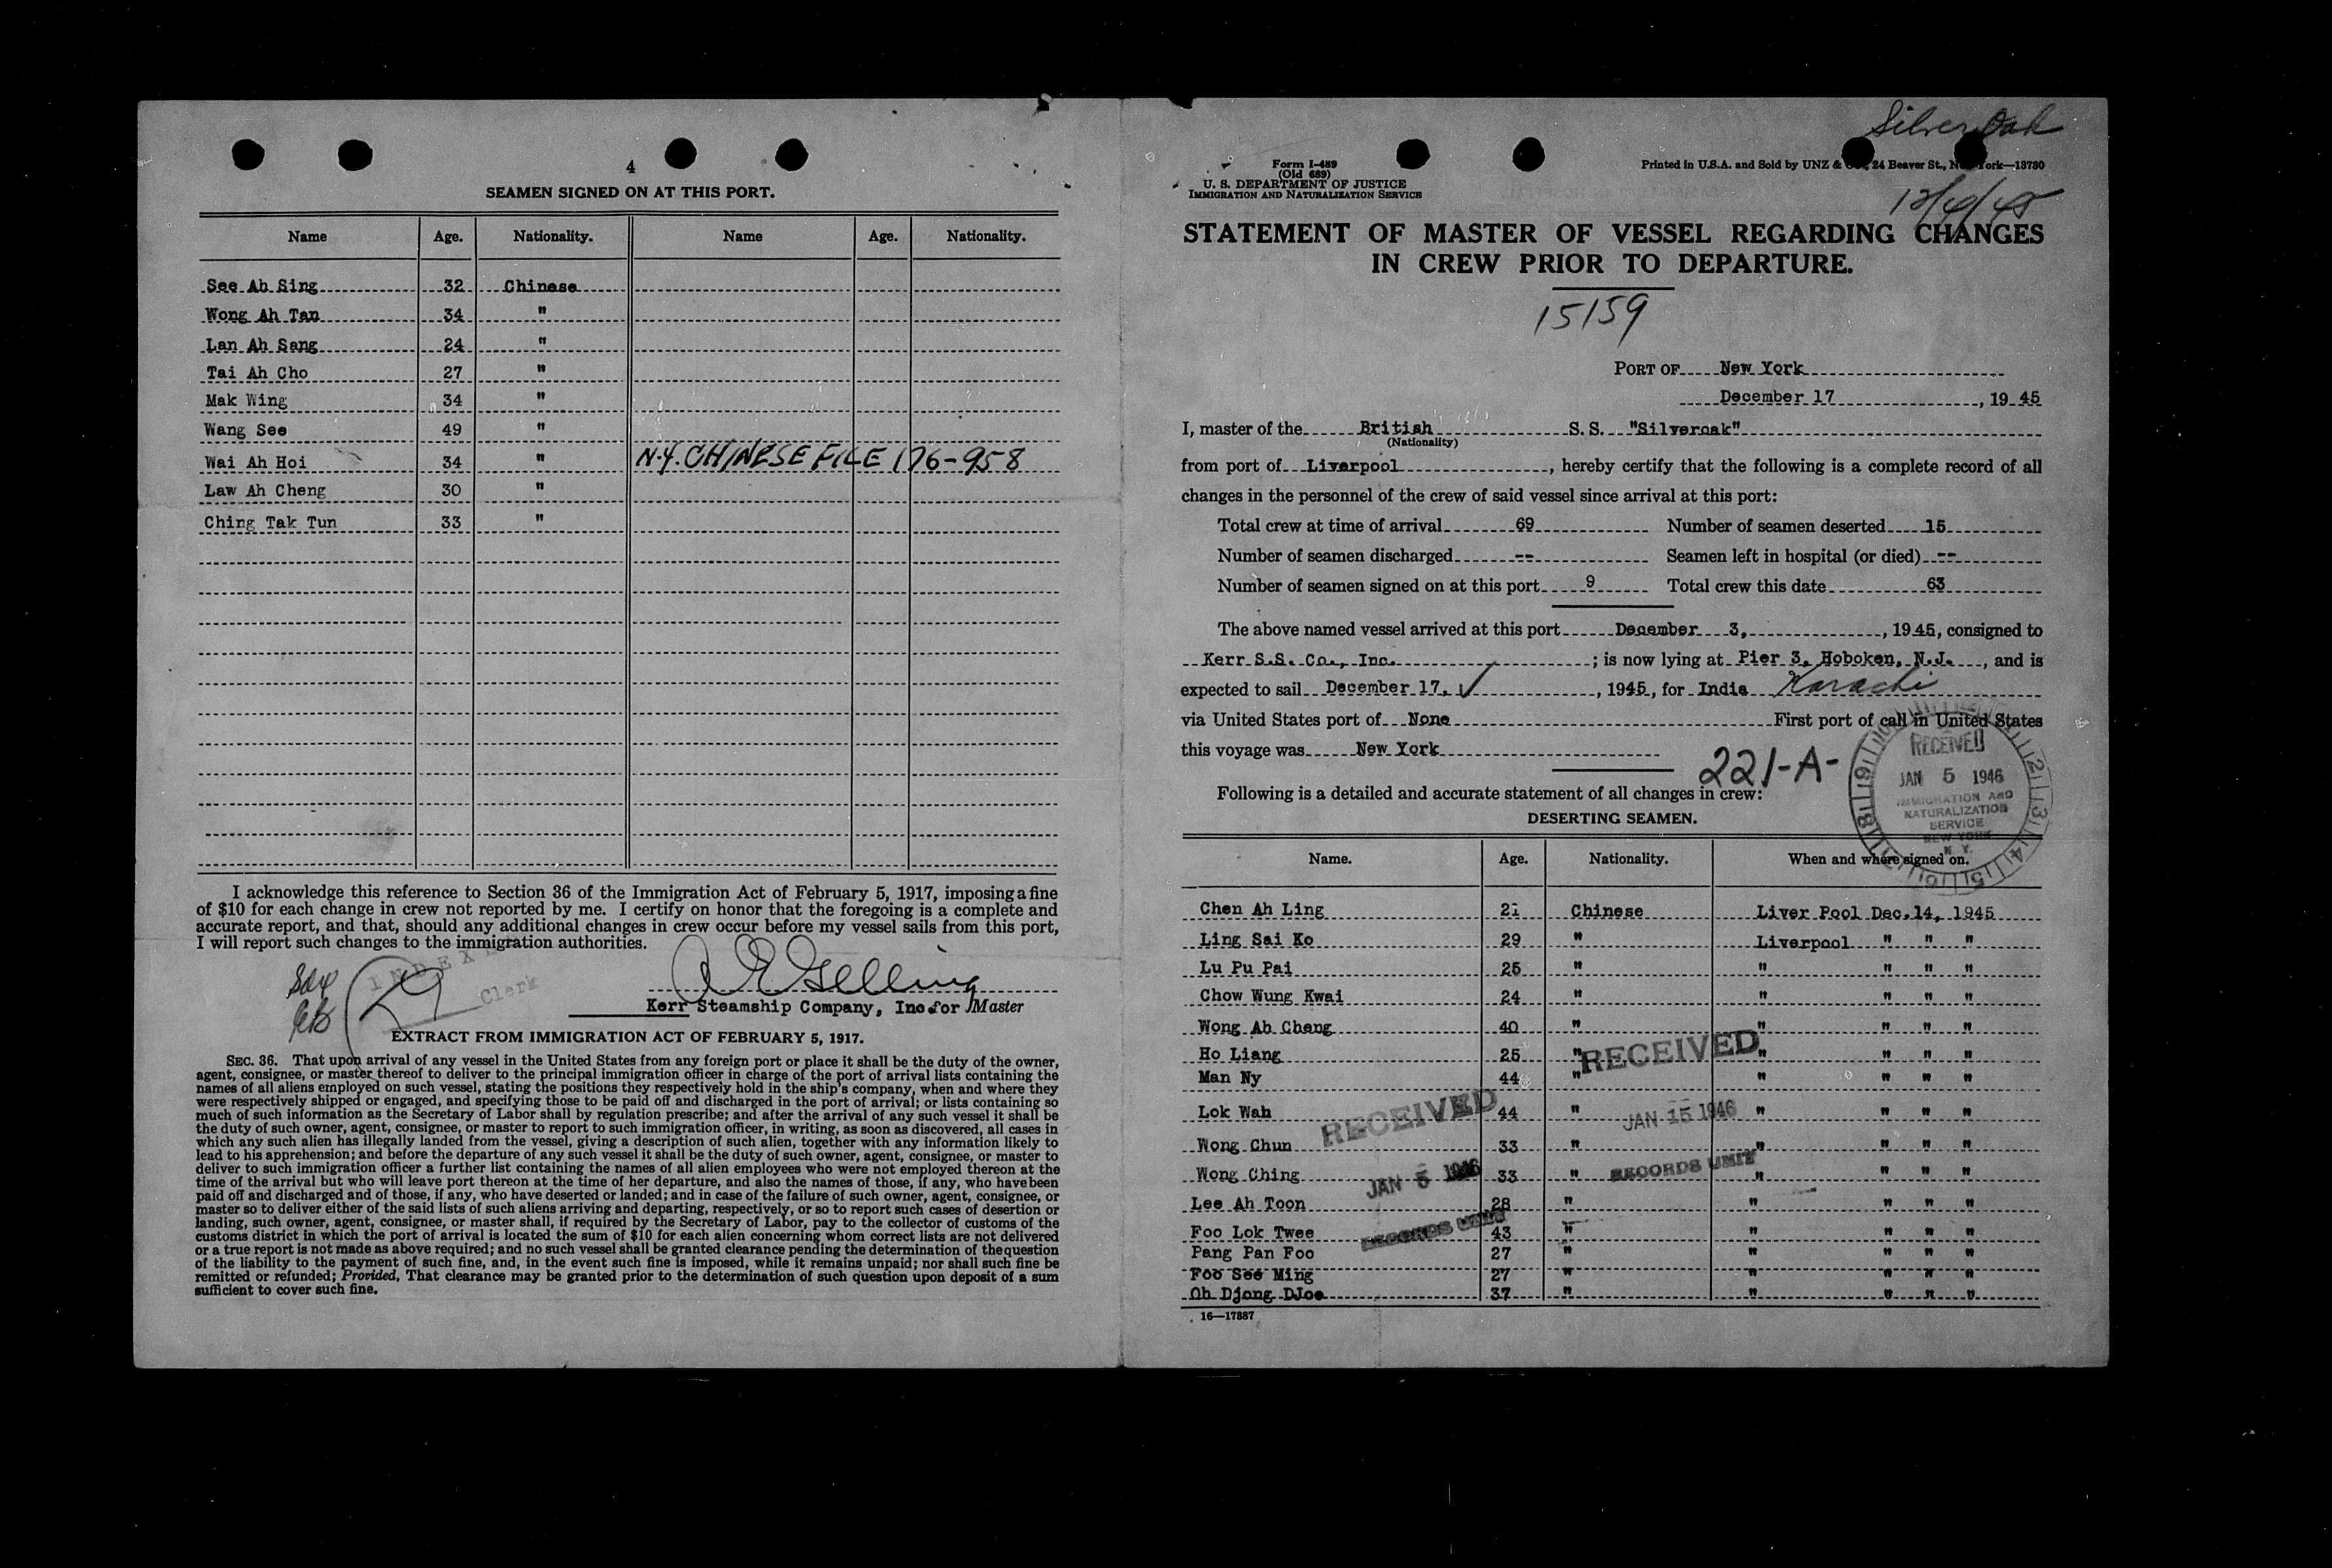 4
SEAMEN SIGNED ON AT THIS PORT.
Name Age. Nationality. Name Age. Nationality.
See Ah Sing 32 Chinese
Wong Ah Tan 34 "
Lan Ah Sang 24 "
Tai Ah Cho 27 "
Mak Wing 34 "
Wang See 49 "
Wai Ah Hoi 34 " N.Y. CHINESE FILE 176-958
Law Ah Cheng 30 "
Ching Tak Tun 33 "
I acknowledge this reference to Section 36 of the Immigration Act of February 5, 1917, imposing a fine
of $10 for each change in crew not reported by me. I certify on honor that the foregoing is a complete and
accurate report, and that, should any additional changes in crew occur before my vessel sails from this port,
I will report such changes to the immigration authorities.
INDEXED
Clerk
Kerr Steamship Company, Inc. for Master
EXTRACT FROM IMMIGRATION ACT OF FEBRUARY 5, 1917.
SEC. 36. That upon arrival of any vessel in the United States from any foreign port or place it shall be the duty of the owner,
agent, consignee, or master thereof to deliver to the principal immigration officer in charge of the port of arrival lists containing the
names of all aliens employed on such vessel, stating the positions they respectively hold in the ship's company, when and where they
were respectively shipped or engaged, and specifying those to be paid off and discharged in the port of arrival; or lists containing so
much of such information as the Secretary of Labor shall by regulation prescribe; and after the arrival of any such vessel it shall be
the duty of such owner, agent, consignee, or master to report to such immigration officer, in writing, as soon as discovered, all cases in
which any such alien has illegally landed from the vessel, giving a description of such alien, together with any information likely to
lead to his apprehension; and before the departure of any such vessel it shall be the duty of such owner, agent, consignee, or master to
deliver to such immigration officer a further list containing the names of all alien employees who were not employed thereon at the
time of the arrival but who will leave port thereon at the time of her departure, and also the names of those, if any, who have been
paid off and discharged and of those, if any, who have deserted or landed; and in case of the failure of such owner, agent, consignee, or
master so to deliver either of the said lists of such aliens arriving and departing, respectively, or so to report such cases of desertion or
landing, such owner, agent, consignee, or master shall, if required by the Secretary of Labor, pay to the collector of customs of the
customs district in which the port of arrival is located the sum of $10 for each alien concerning whom correct lists are not delivered
or a true report is not made as above required; and no such vessel shall be granted clearance pending the determination of the question
of the liability to the payment of such fine, and, in the event such fine is imposed, while it remains unpaid; nor shall such fine be
remitted or refunded; Provided, That clearance may be granted prior to the determination of such question upon deposit of a sum
sufficient to cover such fine.
Silver Oak
Form I-489
(Old 689)
U. S. DEPARTMENT OF JUSTICE
IMMIGRATION AND NATURALIZATION SERVICE
Printed in U.S.A. and Sold by UNZ & 24 Beaver St., New York—13730
STATEMENT OF MASTER OF VESSEL REGARDING CHANGES
IN CREW PRIOR TO DEPARTURE.
15159
PORT OF New York
December 17, 1945
I, master of the British S.S. "Silveroak"
(Nationality)
from port of Liverpool, hereby certify that the following is a complete record of all
changes in the personnel of the crew of said vessel since arrival at this port:
Total crew at time of arrival 69 Number of seamen deserted 15
Number of seamen discharged -- Seamen left in hospital (or died) --
Number of seamen signed on at this port 9 Total crew this date 63
The above named vessel arrived at this port December 3, 1945, consigned to
Kerr S.S. Co., Inc. ; is now lying at Pier 3, Hoboken, N.J., and is
expected to sail December 17, 1945, for India Karachi
via United States port of None First port of call in United States
this voyage was New York
221-A-
RECEIVED
JAN 5 1946
IMMIGRATION AND
NATURALIZATION
SERVICE
NEW YORK
N. Y.
Following is a detailed and accurate statement of all changes in crew:
DESERTING SEAMEN.
Name. Age. Nationality. When and where signed on.
Chen Ah Ling 21 Chinese Liver Pool Dec.14, 1945
Ling Sai Ko 29 " Liverpool " " "
Lu Pu Pai 25 " " " " "
Chow Wung Kwai 24 " " " " "
Wong Ah Cheng 40 " " " " "
Ho Liang 25 " " " " "
Man Ny 44 " " " " "
Lok Wah 44 " " " " "
Wong Chun 33 " " " " "
Wong Ching 33 " " " " "
Lee Ah Toon 28 " " " " "
Foo Lok Twee 43 " " " " "
Pang Pan Foo 27 " " " " "
Foo See Ming 27 " " " " "
Oh Djong DJoe 37 " " " " "
RECEIVED
JAN 15 1946
RECORDS UNIT
RECEIVED
JAN 5 1946
RECORDS UNIT
16—17887